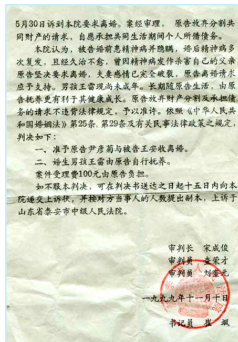 5月30日诉到本院要求离婚。案经审理，原告放弃分割共
同财产的请求，自愿承担共同生活期间个人所借债务。
本院认为，被告婚前患精神病并隐瞒，婚后精神病多
次复发，且经久治不愈，曾因精神病发作杀害自己的父亲
原告坚决要求离婚，夫妻感情已完全破裂，原告离婚请求
应予支持。男孩王雷尚未成年。长期随原告生活，由原
告抚养更有利于其健康成长。原告放弃财产分割及承担债
务的请求不违背法律规定，予以准许。依照《中华人民共
和国婚姻法》第25条，第29条及有关民事法律政策之规定，
判决如下：
一、准予原告尹彦菊与被告王安收离婚。
二、婚生男孩王雷由原告自行抚养。
案件受理费100元由原告负担。
如不服本判决，可在判决书送达之日起十五日内向本
院递交上诉状，并按对方当事人的人数提出副本，上诉于
山东省泰安市中级人民法院。
审判长 宋成俊
审判员
审判员
一九九九年十一月十日
书记员